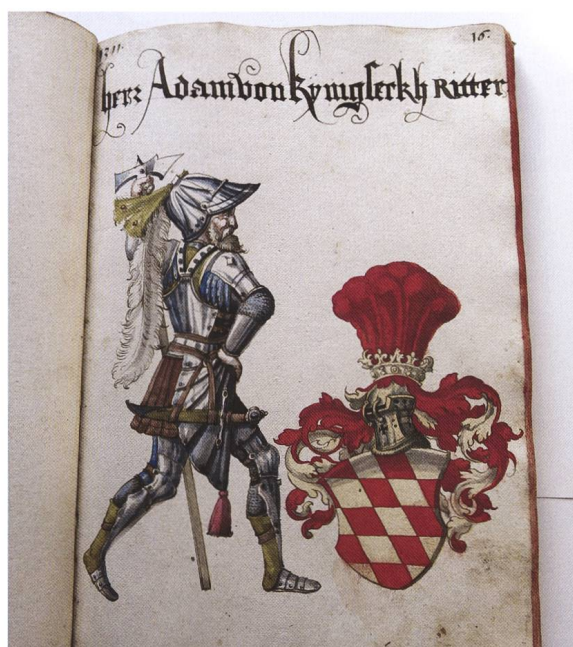 16.
herr Adam von Kynigseckh Ritter